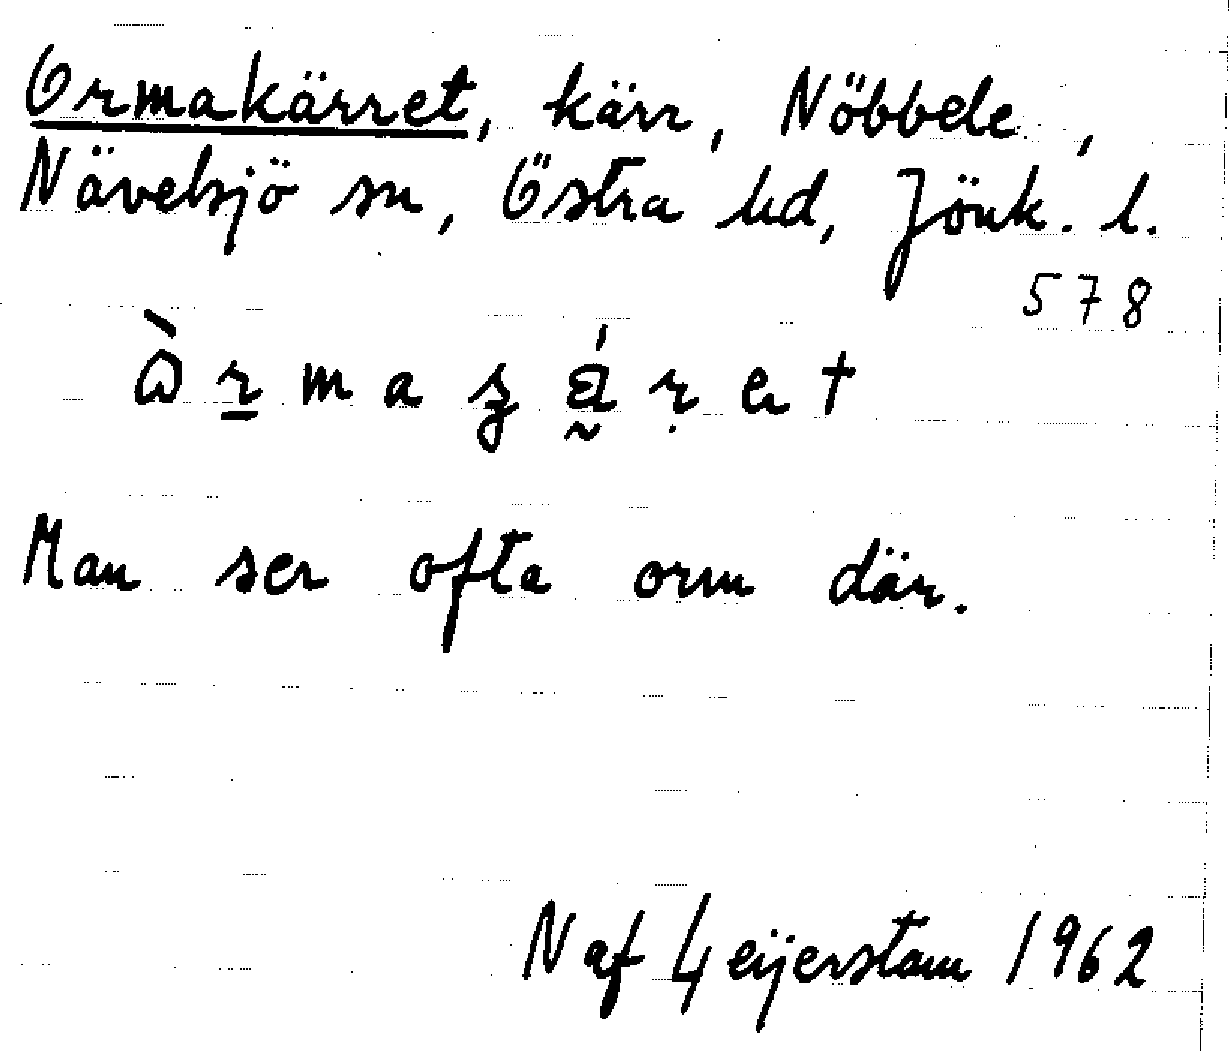 Ormakärret, kärr, Nöbbele,
Nävelsjö sn, Östra hd, Jönk. l.
578
Man ser ofta orm där.
N af Geijerstam 1962